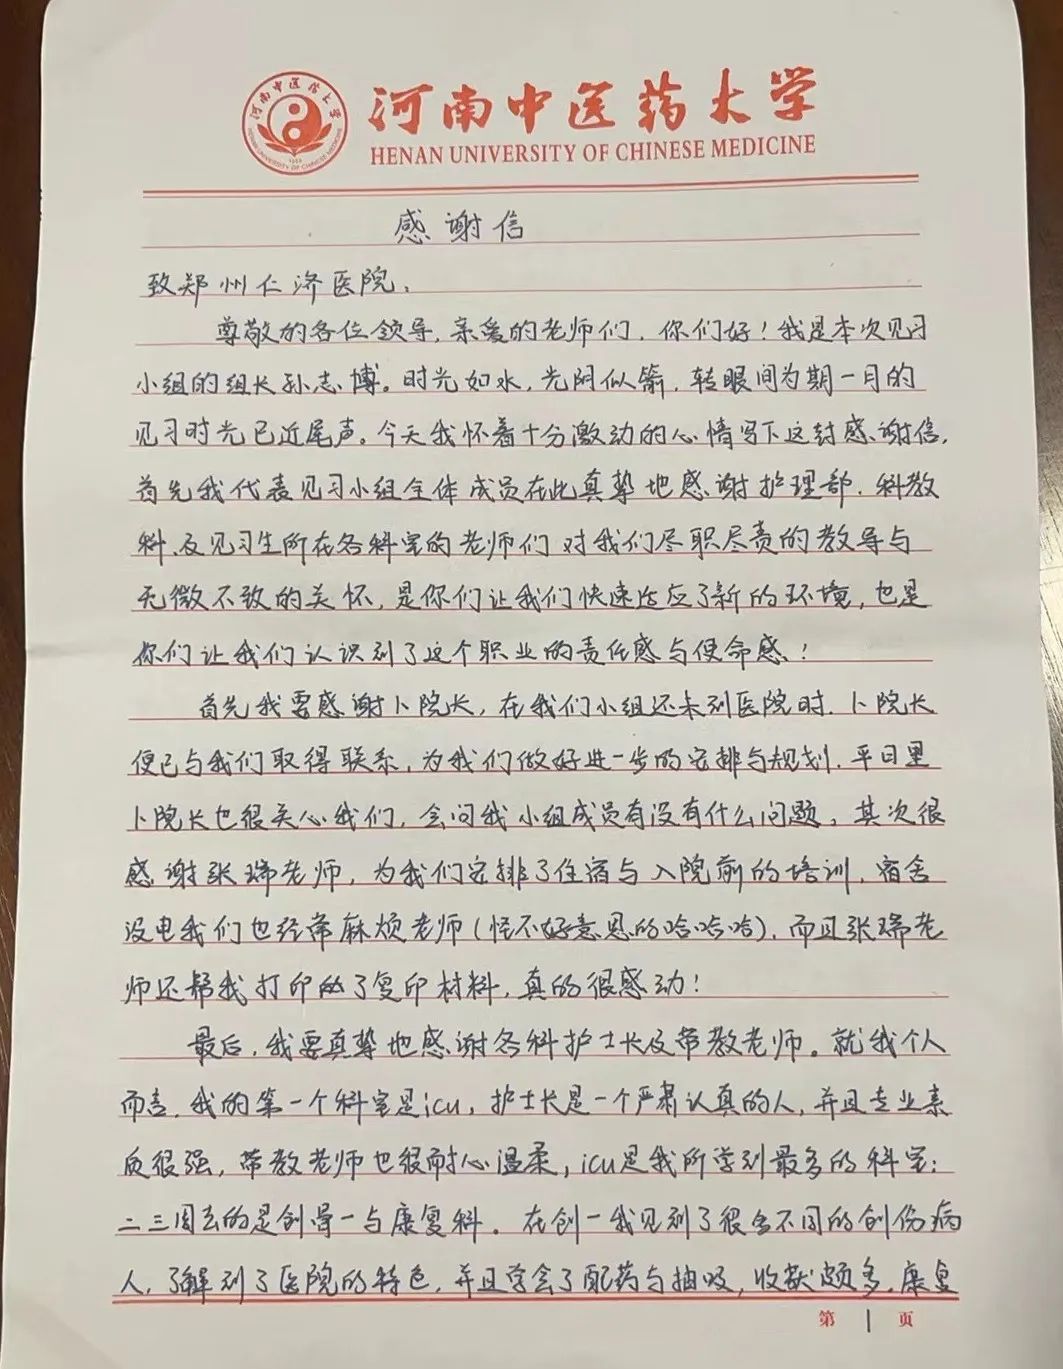 河南中医药大学
HENAN UNIVERSITY OF CHINESE MEDICINE
感谢信
致郑州仁济医院:
尊敬的各位领导,亲爱的老师们,你们好!我是本次见习
小组的组长孙志博。时光如水,光阴似箭,转眼间为期一月的
见习时光已近尾声。今天我怀着十分激动的心情写下这封感谢信,
首先我代表见习小组全体成员在此真挚地感谢护理部、科教
科、及见习生所在各科室的老师们对我们尽职尽责的教导与
无微不致的关怀,是你们让我们快速适应了新的环境,也是
你们让我们认识到了这个职业的责任感与使命感!
首先我要感谢卜院长,在我们小组还未到医院时,卜院长
便已与我们取得联系,为我们做好进一步的安排与规划,平日里
卜院长也很关心我们,会问我小组成员有没有什么问题。其次很
感谢张瑞老师,为我们安排了住宿与入院前的培训,宿舍
没电我们也经常麻烦老师(怪不好意思的哈哈哈),而且张瑞老
师还帮我打印了复印材料,真的很感动!
最后,我要真挚地感谢各科护士长及带教老师。就我个人
而言,我的第一个科室是icu,护士长是一个严肃认真的人,并且专业素
质很强,带教老师也很耐心温柔,icu是我所学到最多的科室;
二三周去的是创骨一与康复科。在创一我见到了很多不同的创伤病
人,了解到了医院的特色,并且学会了配药与抽吸,收获颇多,康复
第 1 页